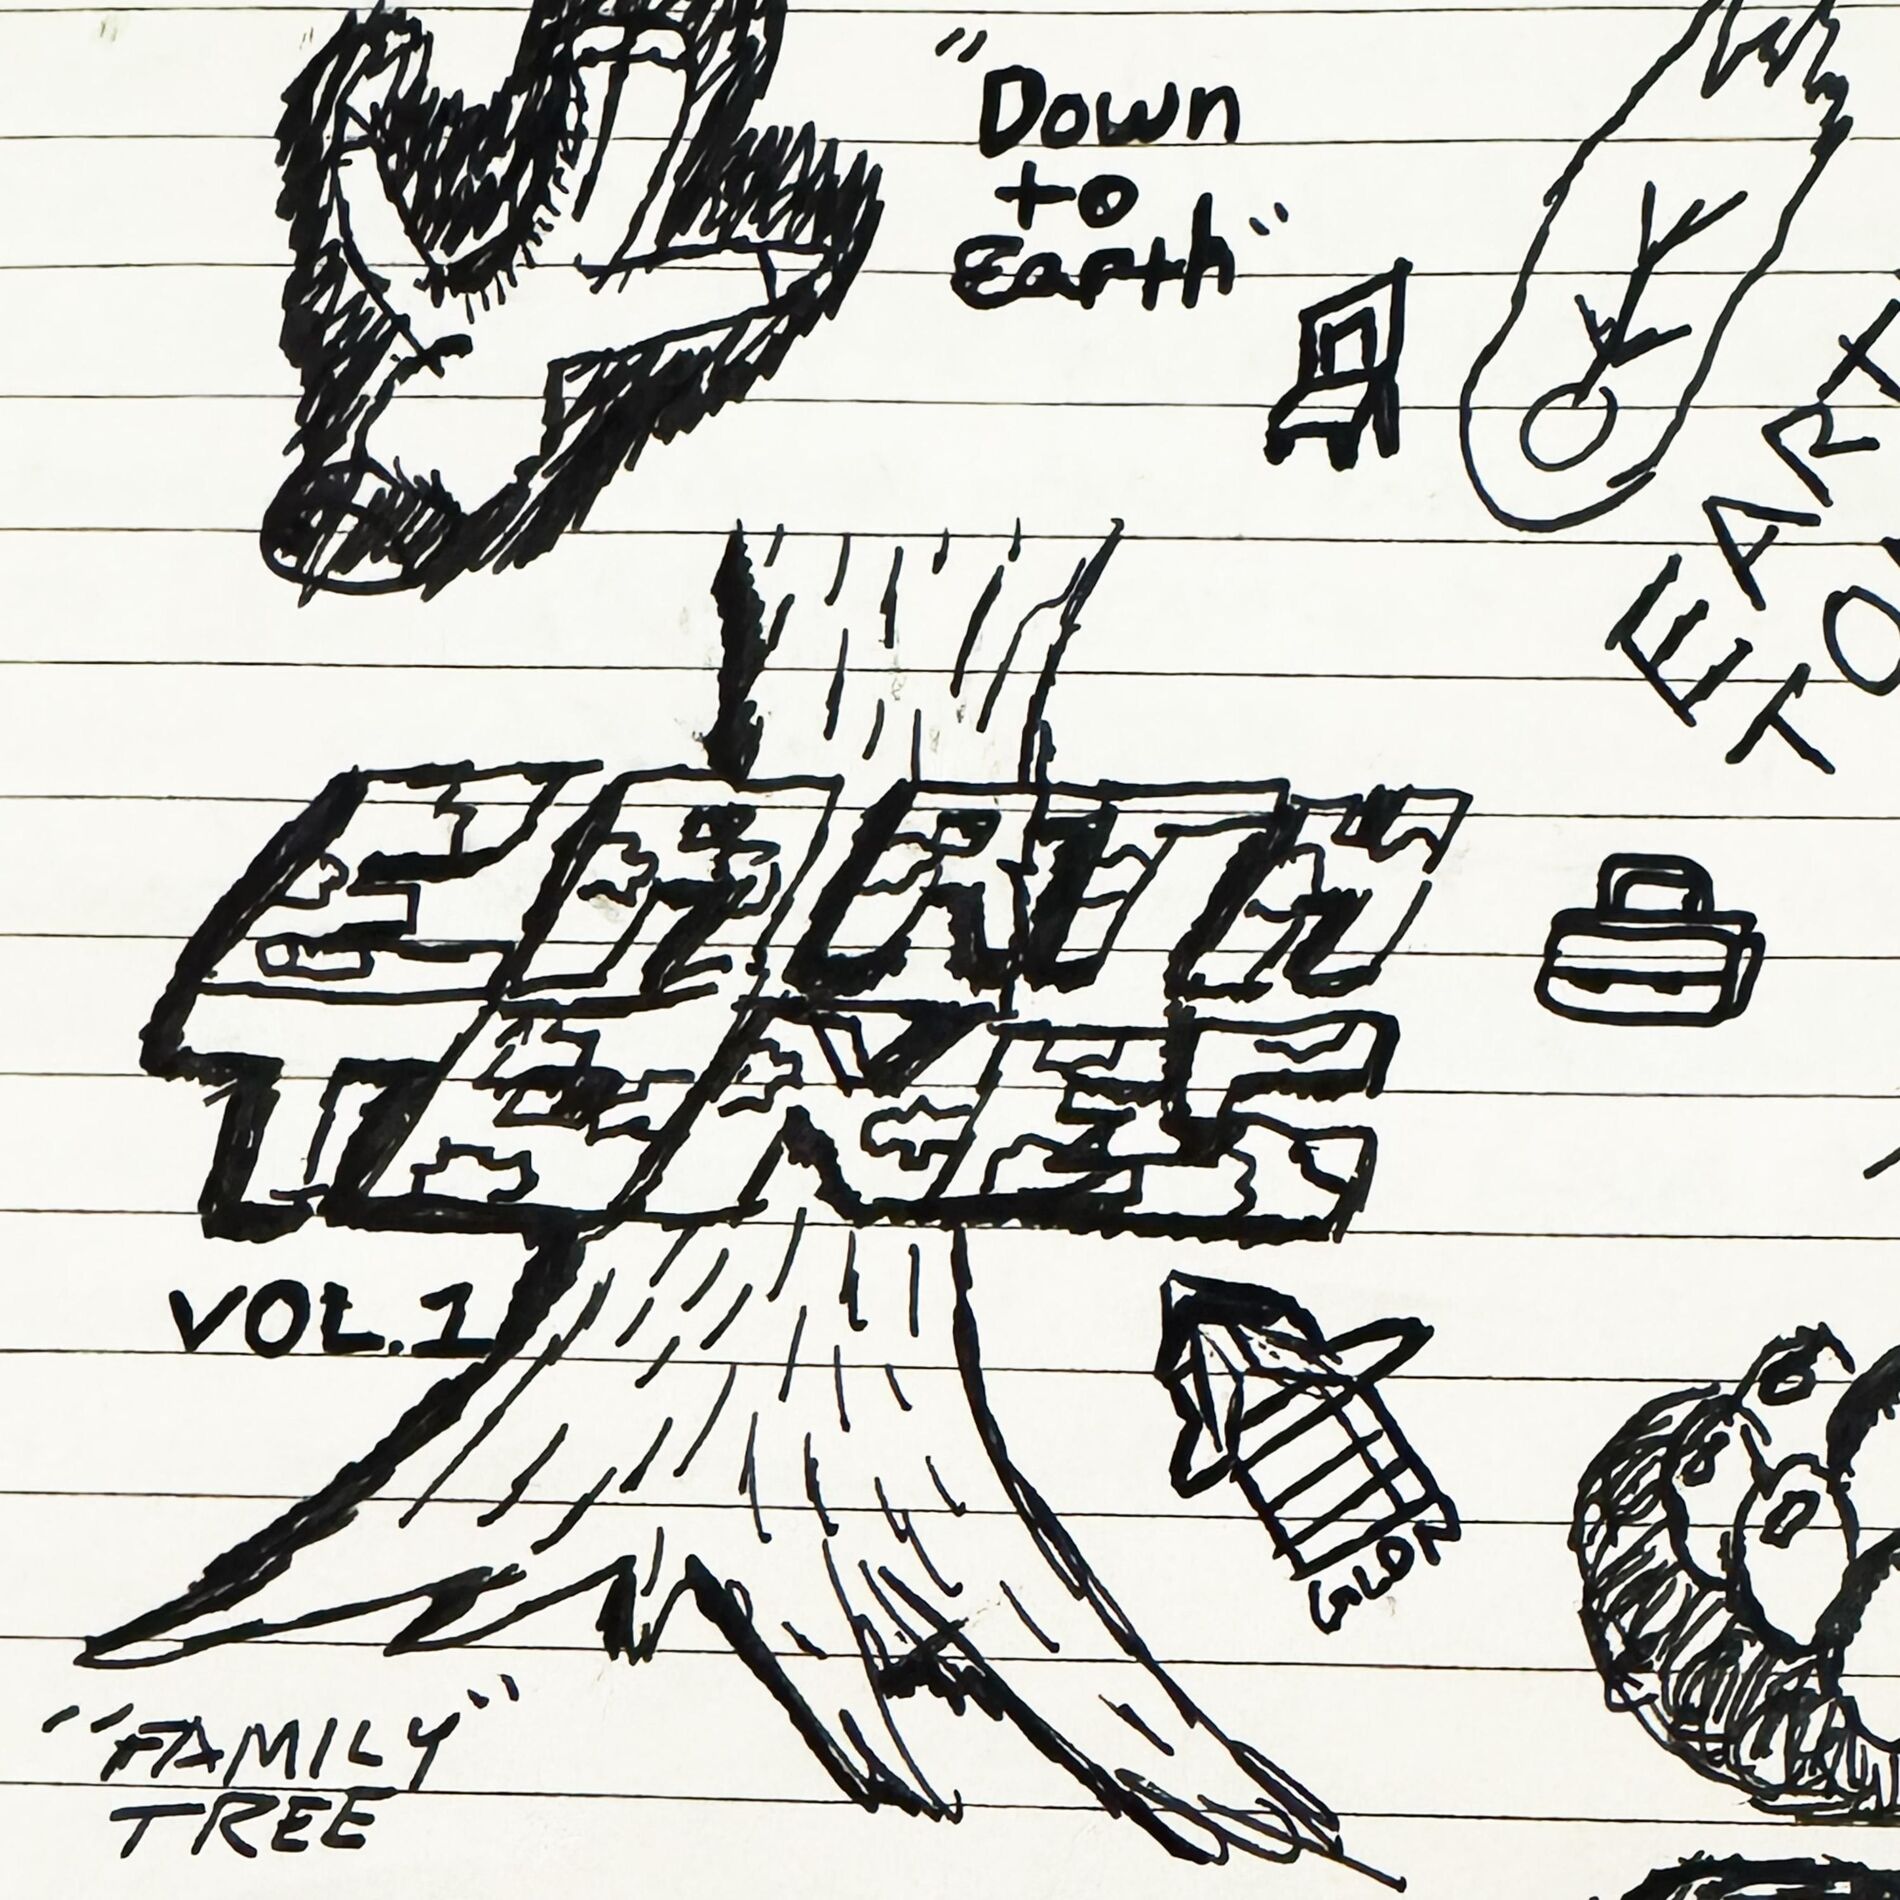 "Down
to
Earth"
EART
TO
EARTH
TONES
VOL.1
GLDN
"FAMILY"
TREE